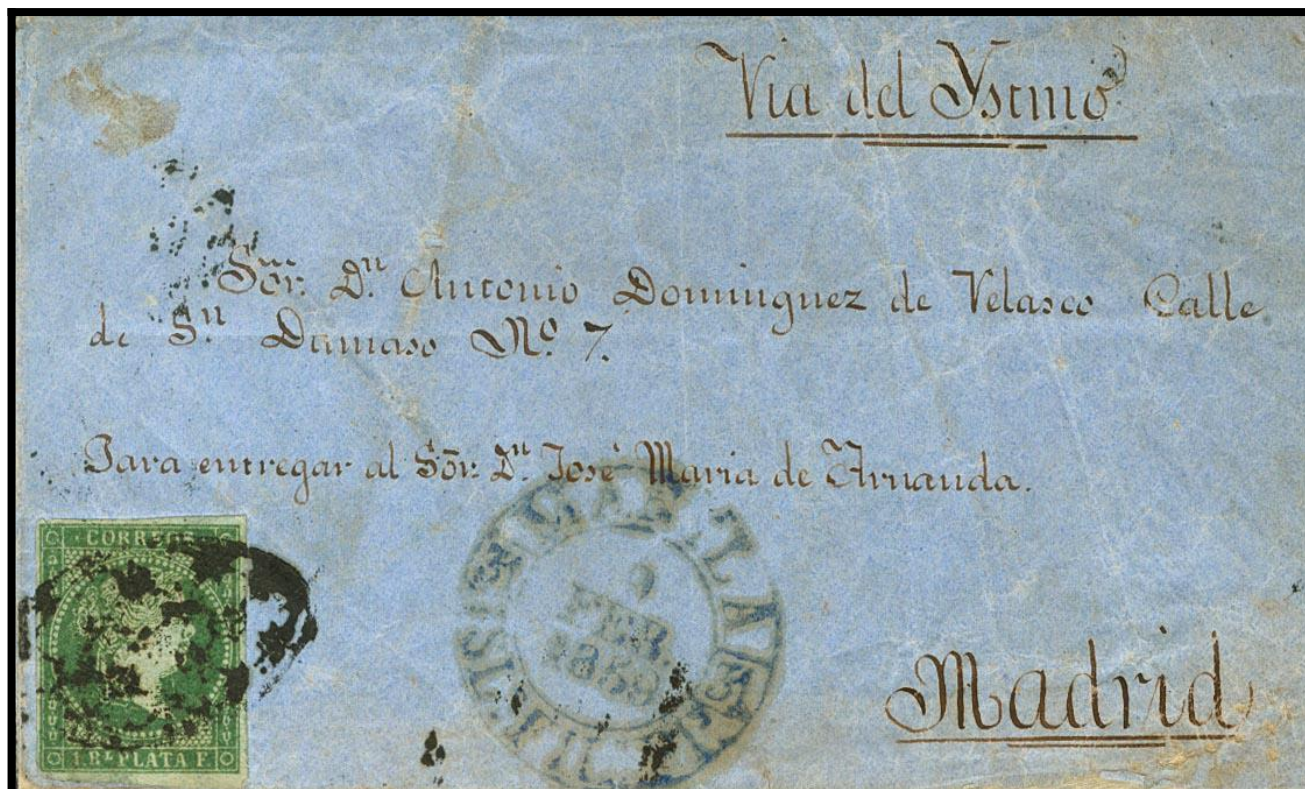 Via del Ystmo
Sōr. Dⁿ. Antonio Dominguez de Velasco Calle
de Sⁿ. Damaso Nº. 7.
Para entregar al Sōr. Dⁿ. José Maria de Arnanda.
CORREOS
1. Rˡ PLATA F.
FEB.
1859
Madrid